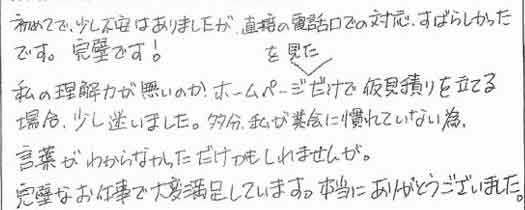 初めてで、少し不安はありましたが、直接の電話口での対応、すばらしかった
です。完璧です!
を見た
私の理解力が悪いのか、ホームページだけで仮見積りを立てる
場合、少し迷いました。多分、私が英会に慣れていない為、
言葉がわからなかっただけかもしれませんが。
完璧なお仕事で大変満足しています。本当にありがとうございました。